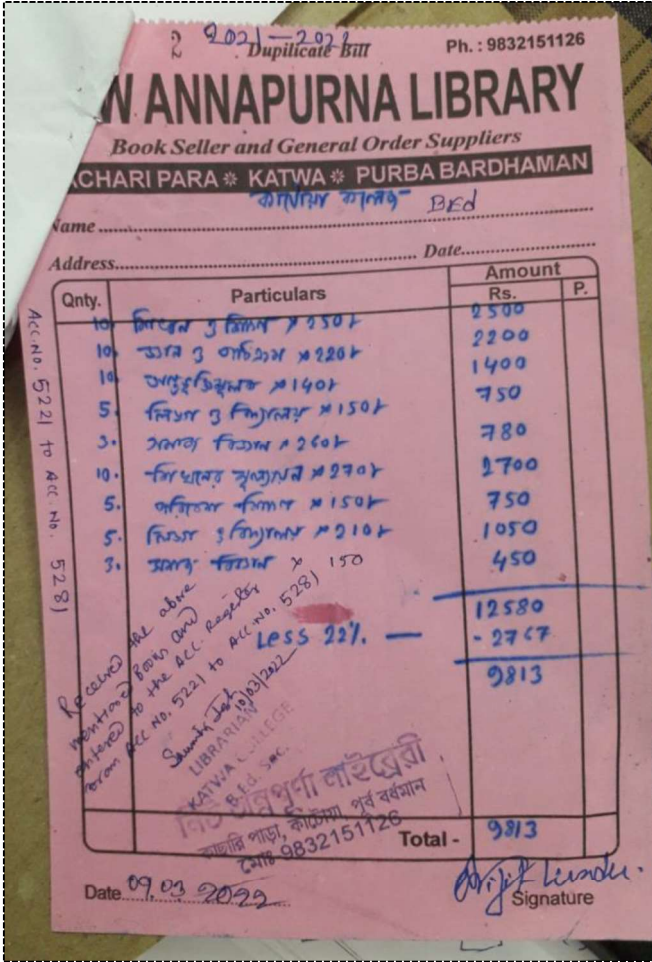 2 2021-2022
Dupilicate Bill
Ph. : 9832151126
W ANNAPURNA LIBRARY
Book Seller and General Order Suppliers
ACHARI PARA ❋ KATWA ❋ PURBA BARDHAMAN
কাটোয়া কলেজ BEd
Name
Address Date
Qnty. Particulars Amount
Rs. P.
10. ও × 250/- 2500
10. জ্ঞান ও × 220/- 2200
10. × 140/- 1400
5. লিঙ্গ ও বিদ্যালয় × 150/- 750
3. সমাজ বিজ্ঞান × 260/- 780
10. শিখনের মূল্যায়ন × 270/- 2700
5. পরিবেশ × 150/- 750
5. ও × 210/- 1050
3. সমাজ বিজ্ঞান × 150 450
12580
Less 22% — - 2767
9813
ACC.NO. 5221 to ACC. NO. 5281
Received the above
mentioned Books and
entered to the Acc. Register
from ACC NO. 5221 to ACC.NO. 5281
10/03/2022
LIBRARIAN
KATWA COLLEGE
B.Ed. Sec.
নিউ অন্নপূর্ণা লাইব্রেরী
কাছারি পাড়া, কাটোয়া, পূর্ব বর্ধমান
মোঃ 9832151126
Total - 9813
Date 09.03.2022
Signature